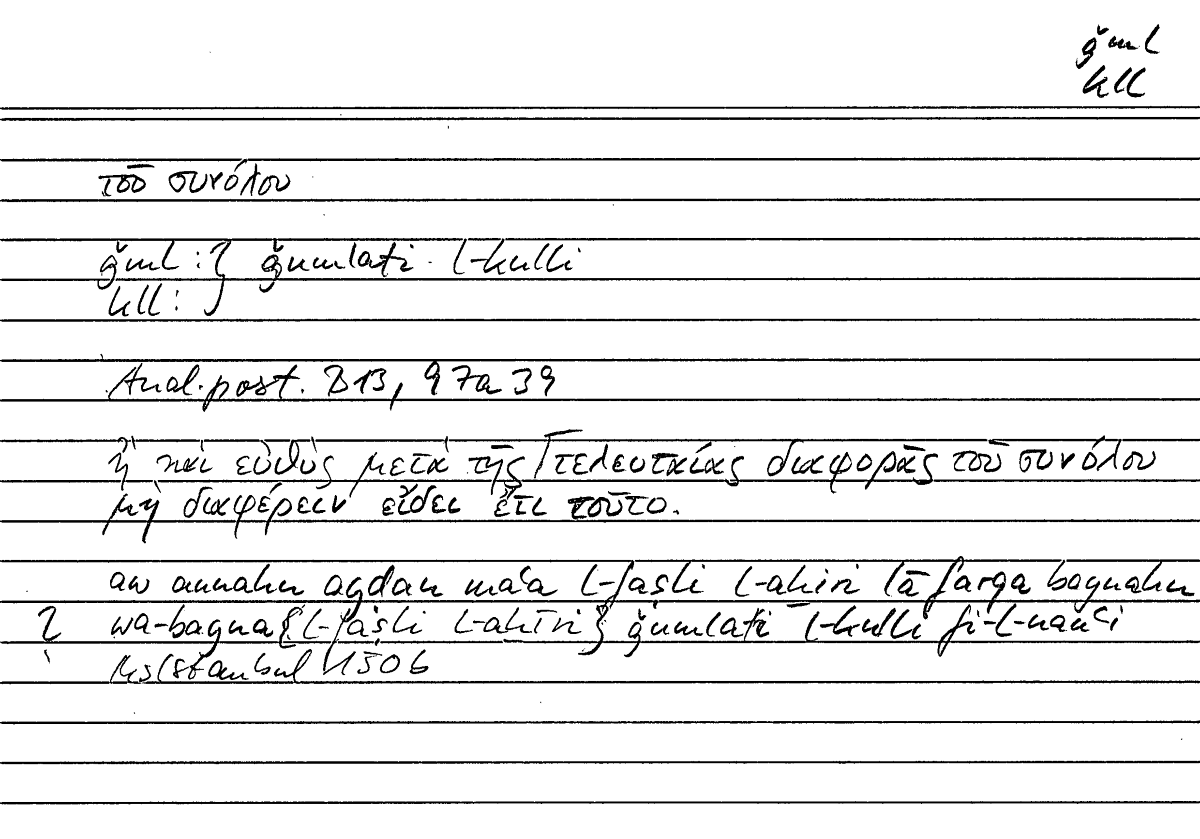 ǧml
kll
τοῦ συνόλου
ǧml : } ǧumlati l-kulli
kll : }
Anal. post. B13, 97a39
ἢ καὶ εὐθὺς μετὰ τῆς τελευταίας διαφορᾶς τοῦ συνόλου
μὴ διαφέρειν εἴδει ἔτι τοῦτο.
aw annahu ayḍan maʿa l-faṣli l-aḫīri lā farqa baynahu
? wa-bayna {l-faṣli l-aḫīri} ǧumlati l-kulli fī-l-nawʿi
Ms Istanbul 1506